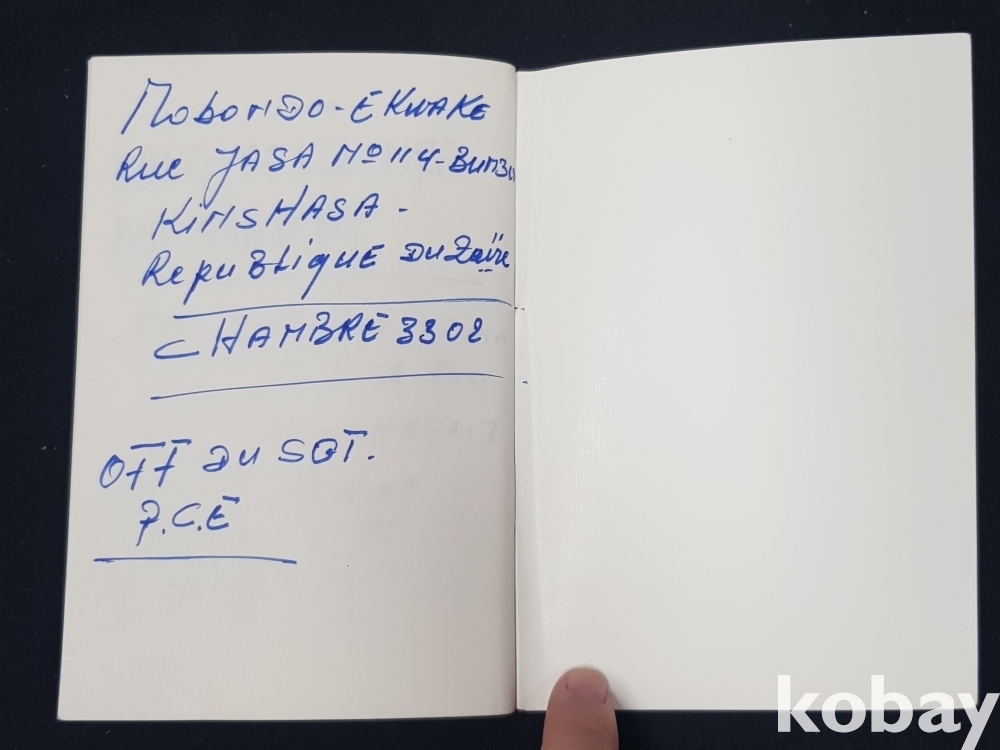 MoboNDo-EKWAKE
Rue YASA Nº 114-BUMBU
KiNSHASA -
RepuBliquE Du Zaïre
CHAMBRE 3302
OFF Du SGT.
P.C.E
kobay